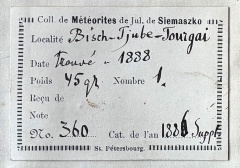 Coll. de Météorites de Jul. de Siemaszko
Localité Bisch-Tjube-Tourgai
Date trouvé - 1888
Poids 45gr Nombre 1.
Reçu de
Note
No. 360 Cat. de l'an 1886 Suppl.
St. Pétersbourg.